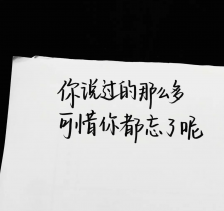 你说过的那么多
可惜你都忘了呢